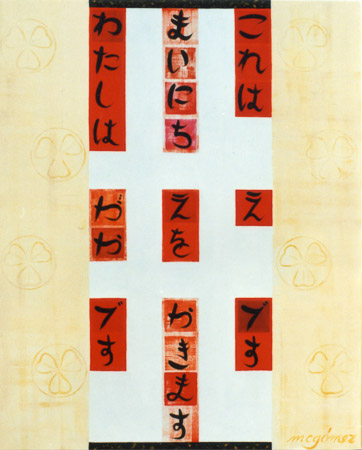 これは え です
まいにち えを かきます
わたしは がか です